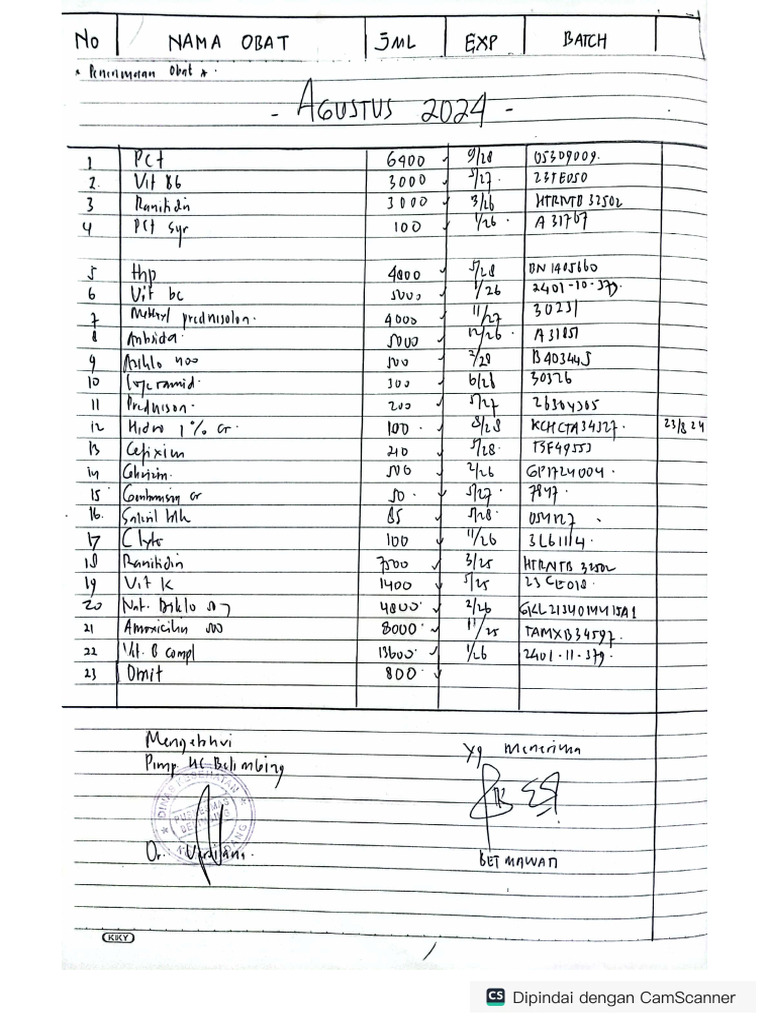 No NAMA OBAT JML EXP BATCH
* Penerimaan Obat *.
- AGUSTUS 2024 -
1 PCt 6400 9/28 05309009.
2. Vit B6 3000 5/27. 23TE050
3 Ranitidin 3000 3/26 HTRNTB 32502
4 PCt Syr 100 1/26. A 31767
5 thp 4000 5/28 BN 1405660
6 Vit bc 5000 1/26 2401-10-379.
7 Methyl prednisolon. 4000 11/27 30231
8 5000 12/26. A 31851
9 400 500 2/28 B403445
10 300 6/28 30326
11 Prednison. 200 5/27 26304305
12 Hidro 1% Cr. 100. 8/28 KCHCTA34327. 23/8 24
13 Cefixim 210 5/28. TSF49553
14 500 2/26 GP1724004.
15 Cr 50. 5/27. 7847.
16. 85 5/28.
17 100 11/26 3L61114.
18 Ranitidin 7500 3/25 HTRNTB 32502
19 Vit K 1400 5/25 23CE018.
20 Nat. Diklo 50 4800 2/26
21 Amoxicilin 500 8000 11/25 TAMXB34597.
22 Vit. B compl 13600 1/26 2401-11-379.
23 Omit 800
Mengetahui
Pimp HC Belimbing
Yg menerima
DINAS KESEHATAN
PUSKESMAS
BELIMBING
PADANG
Dr.
BETMAWATI
KIKY
CS Dipindai dengan CamScanner